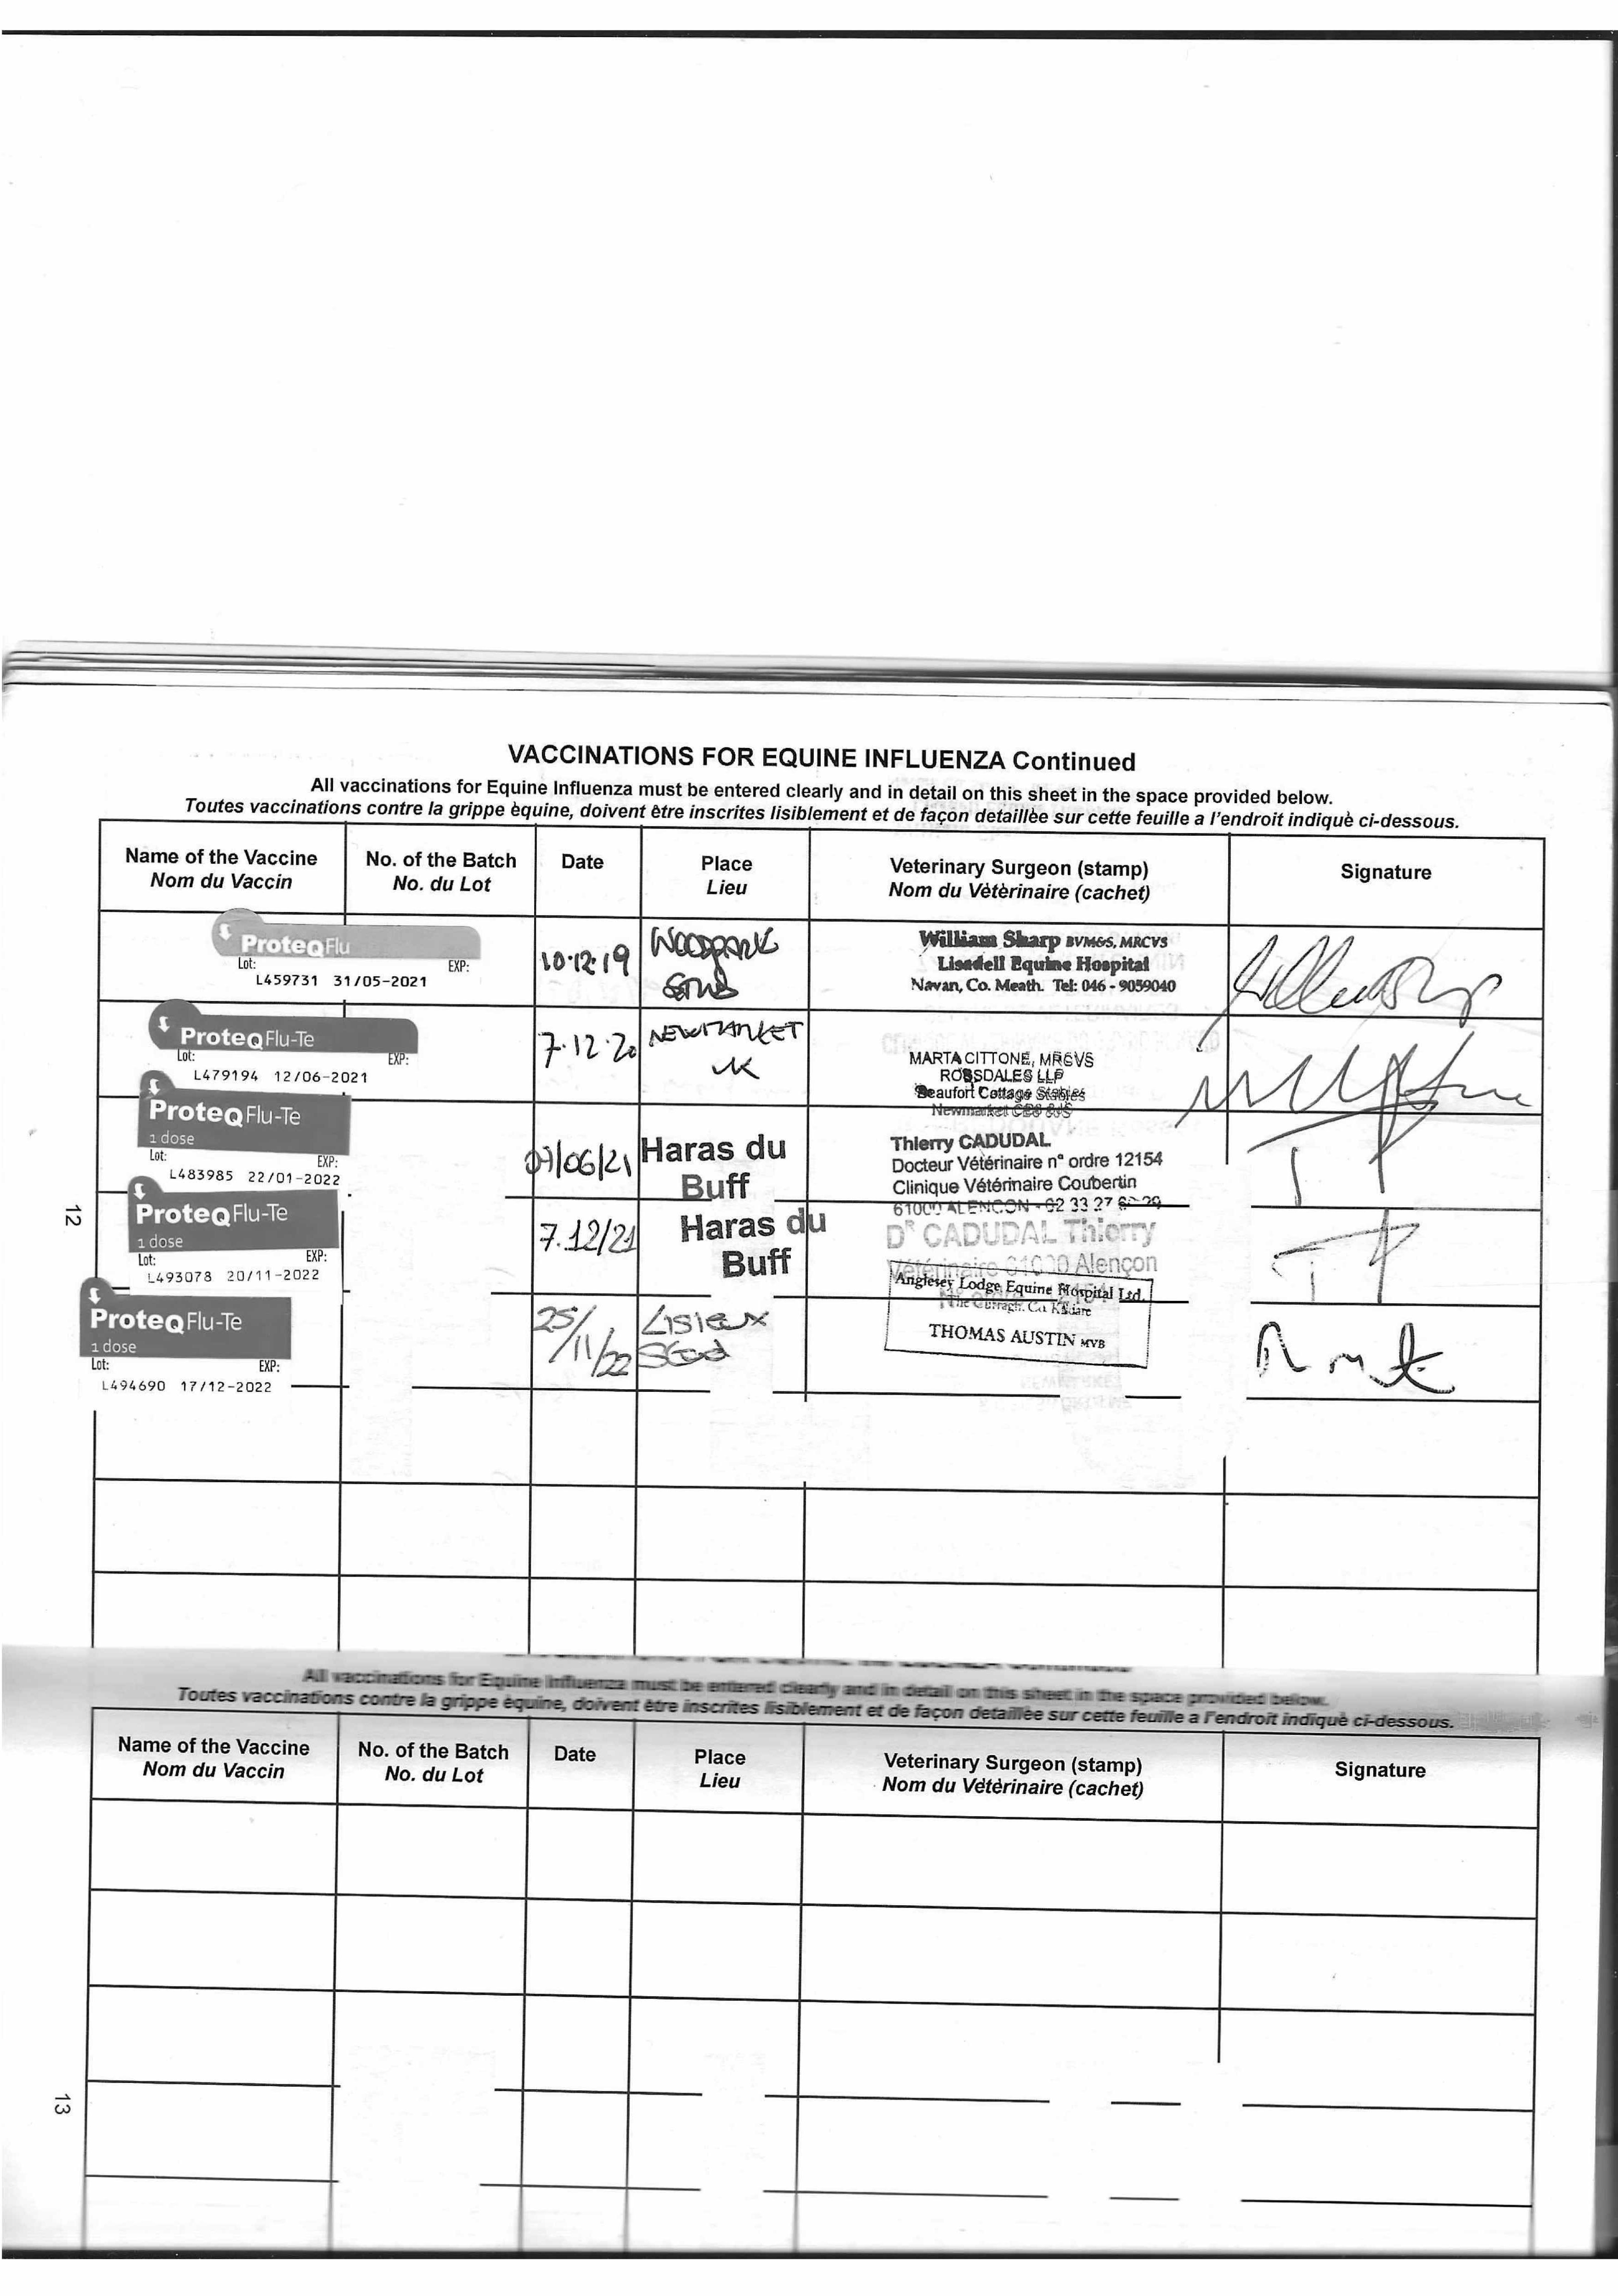 VACCINATIONS FOR EQUINE INFLUENZA Continued
All vaccinations for Equine Influenza must be entered clearly and in detail on this sheet in the space provided below.
Toutes vaccinations contre la grippe èquine, doivent ètre inscrites lisiblement et de façon detaillèe sur cette feuille a l'endroit indiquè ci-dessous.
Name of the Vaccine
Nom du Vaccin
No. of the Batch
No. du Lot
Date
Place
Lieu
Veterinary Surgeon (stamp)
Nom du Vètèrinaire (cachet)
Signature
ProteqFlu
Lot: EXP:
L459731 31/05-2021
10.12.19
WOODPARK
STUD
William Sharp BVM&S, MRCVS
Lisadell Equine Hospital
Navan, Co. Meath. Tel: 046 - 9059040
ProteqFlu-Te
Lot: EXP:
L479194 12/06-2021
7.12.20
NEWMARKET
UK
MARTA CITTONE, MRCVS
ROSSDALES LLP
Beaufort Cottage Stables
Newmarket CB8 8JS
ProteqFlu-Te
1 dose
Lot: EXP:
L483985 22/01-2022
/06/21
Haras du
Buff
Thierry CADUDAL
Docteur Vétérinaire n° ordre 12154
Clinique Vétérinaire Coubertin
61000 ALENCON - 02 33 27
ProteqFlu-Te
1 dose
Lot: EXP:
L493078 20/11-2022
7.12/21
Haras du
Buff
DR CADUDAL Thierry
Vétérinaire 61000 Alençon
ProteqFlu-Te
1 dose
Lot: EXP:
L494690 17/12-2022
25/
/11/22
Lisieux
Stud
Anglesey Lodge Equine Hospital Ltd.
The Curragh. Co. Kildare
THOMAS AUSTIN MVB
12
All vaccinations for Equine Influenza must be entered clearly and in detail on this sheet in the space provided below.
Toutes vaccinations contre la grippe èquine, doivent ètre inscrites lisiblement et de façon detaillèe sur cette feuille a l'endroit indiquè ci-dessous.
Name of the Vaccine
Nom du Vaccin
No. of the Batch
No. du Lot
Date
Place
Lieu
Veterinary Surgeon (stamp)
Nom du Vètèrinaire (cachet)
Signature
13